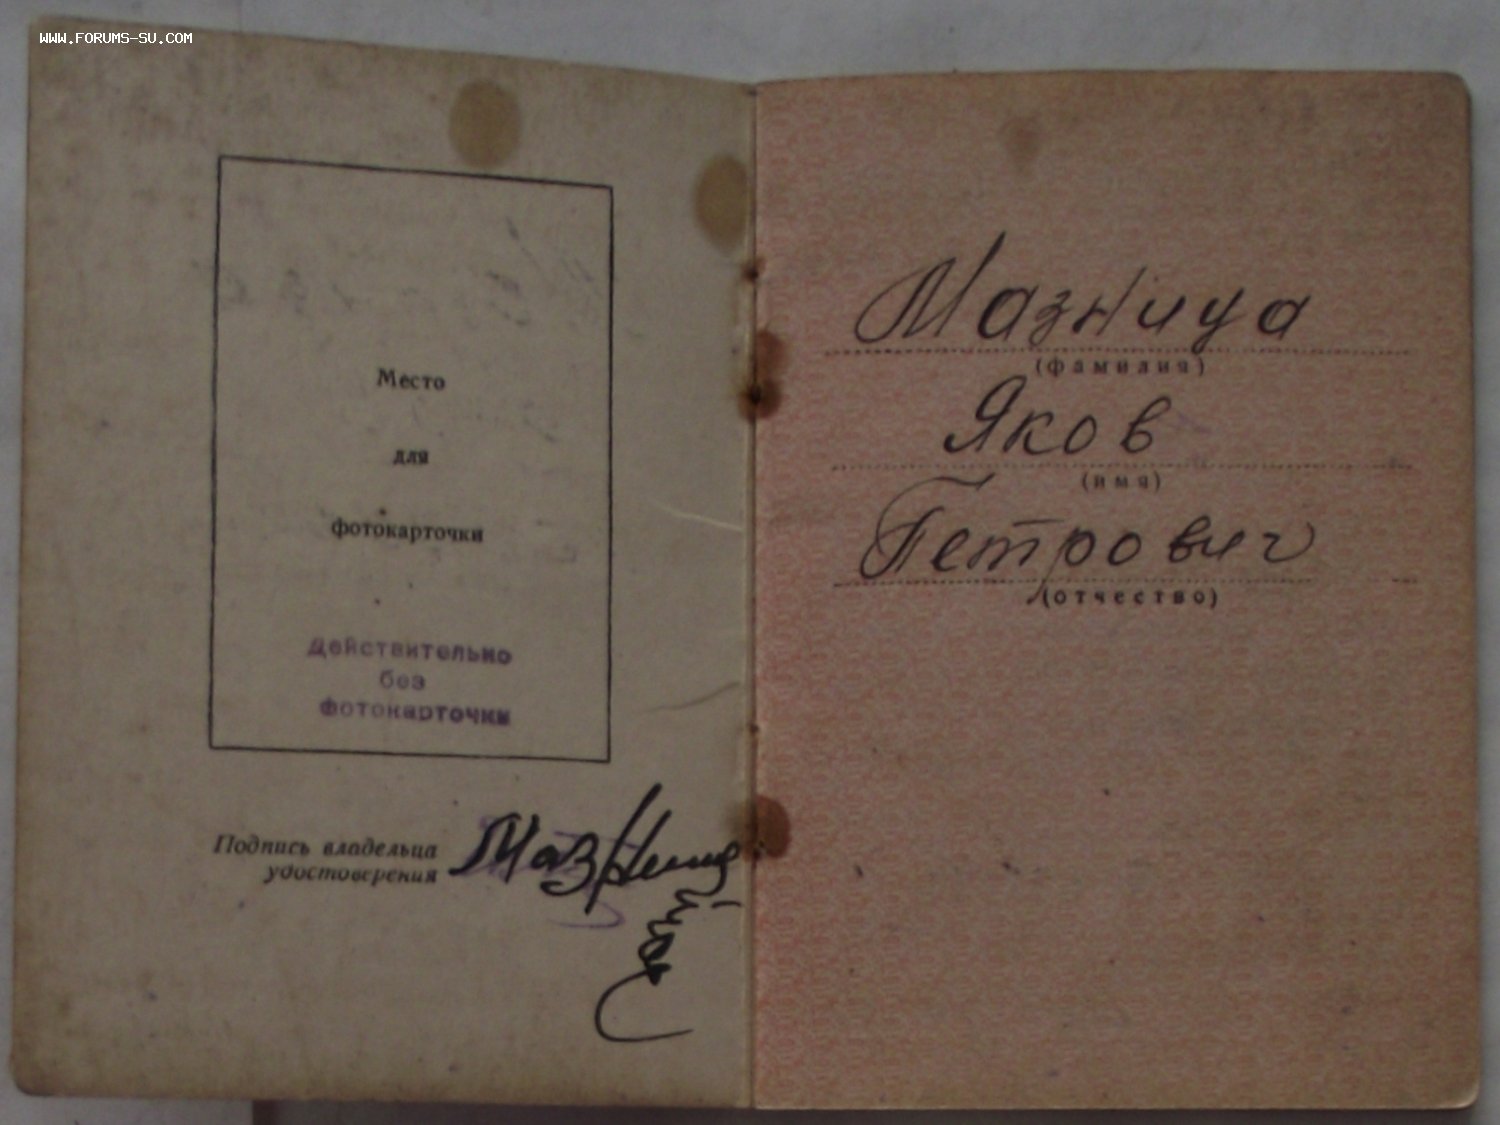 WWW.FORUMS-SU.COM
Место
для
фотокарточки
Действительно
без
фотокарточки
Подпись владельца
удостоверения
Мазница
(фамилия)
Яков
(имя)
Петрович
(отчество)